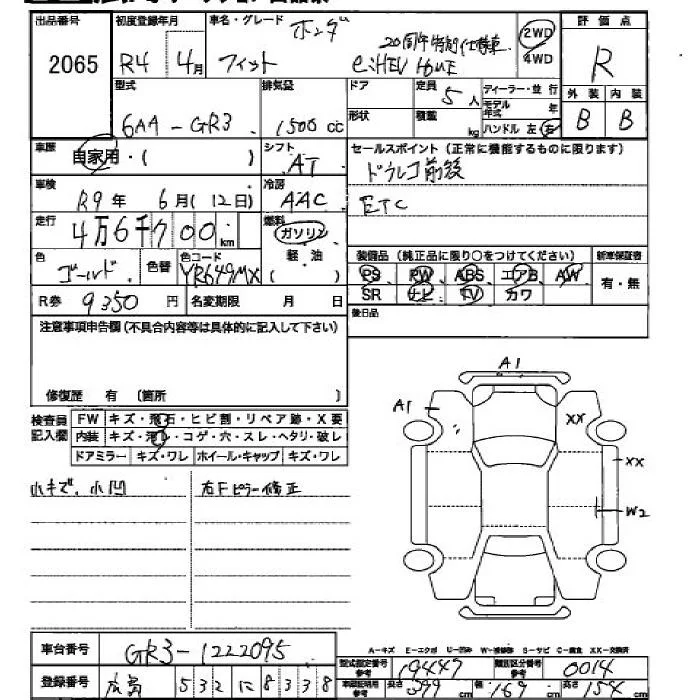 出品番号 初度登録年月 車名・グレード ホンダ 評価点
2065 R4 4月 フィット 20周年特別仕様車 e:HEV HOME 2WD 4WD R
型式 排気量 ドア 定員 5人 ディーラー・並行 外装 内装
6AA-GR3 1500cc 形状 積載 kg モデル年式 年 ハンドル 左・右 B B
車歴 自家用・( ) シフト AT セールスポイント(正常に機能するものに限ります)
ドラレコ前後
車検 R9年 6月(12日) 冷房 AAC ETC
走行 4万6千700km 燃料 ガソリン 軽油 ( )
色 ゴールド 色替 色コード YR649MX 装備品(純正品に限り○をつけてください) 新車保証書
PS PW ABS エアB AW 有・無
R券 9350円 名変期限 月 日 SR ナビ TV カワ
後日品
注意事項申告欄(不具合内容等は具体的に記入して下さい)
修復歴 有 (箇所 )
検査員記入欄 FW キズ・飛石・ヒビ割・リペア跡・X要
内装 キズ・汚レ・コゲ・穴・スレ・ヘタリ・破レ
ドアミラー キズ・ワレ ホイール・キャップ キズ・ワレ
小キズ、小凹 右Fピラー修正
A1
A1 XX
XX
W2
A-キズ E-エクボ U-凹み W-補修跡 S-サビ C-腐食 XX-交換済
車台番号 GR3-1222095
型式指定番号 参考 19447 類別区分番号 参考 0014
登録番号 広島 532 に 8338
車庫証明用 参考 長さ 399cm 幅 169cm 高さ 154cm